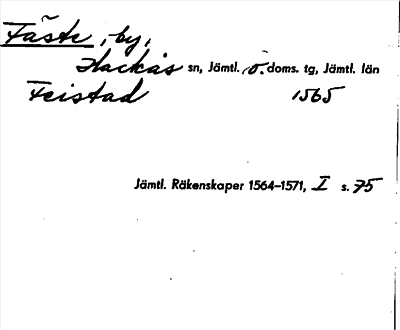 Fäste, by,
Hackås sn, Jämtl. ö. doms. tg, Jämtl. län
Feistad 1565
Jämtl. Räkenskaper 1564-1571, I s. 75